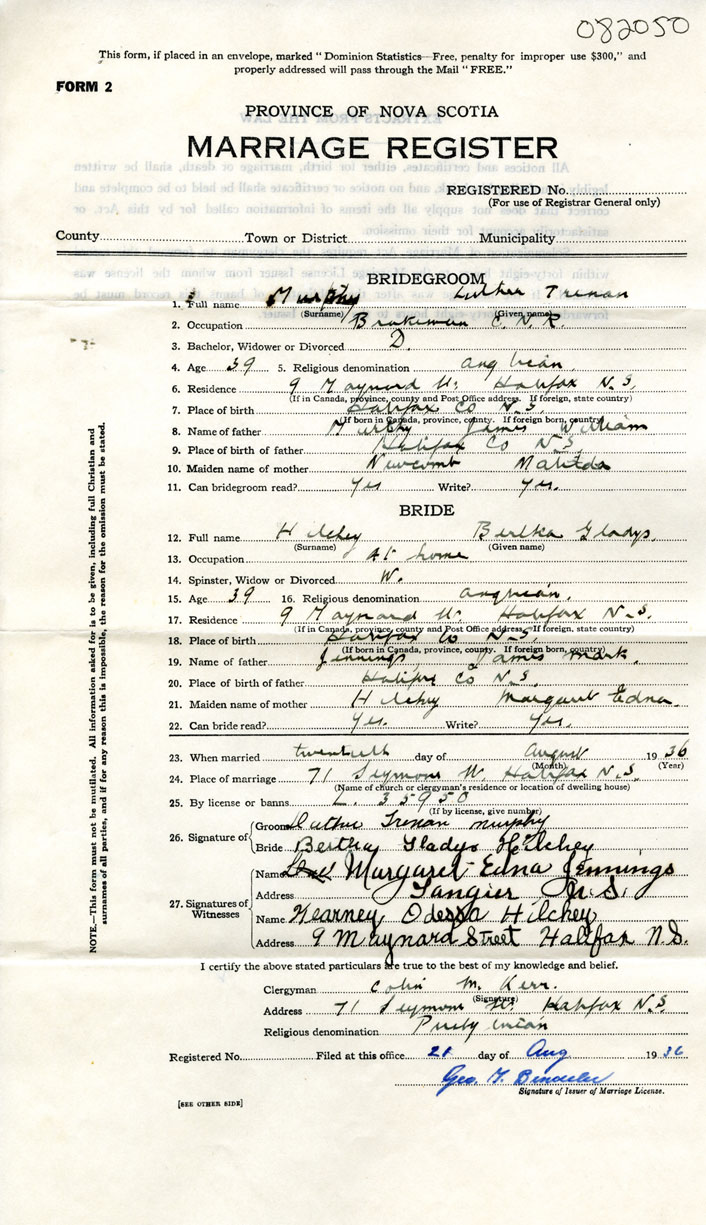 082050
This form, if placed in an envelope, marked "Dominion Statistics—Free, penalty for improper use $300," and
properly addressed will pass through the Mail "FREE."
FORM 2
PROVINCE OF NOVA SCOTIA
MARRIAGE REGISTER
REGISTERED No.
(For use of Registrar General only)
County Town or District Municipality
BRIDEGROOM
1. Full name Murphy Luther Trenan
(Surname) (Given name)
2. Occupation Brakeman C. N. R.
3. Bachelor, Widower or Divorced D.
4. Age 39 5. Religious denomination Anglican
6. Residence 9 Maynard St. Halifax N.S.
(If in Canada, province, county and Post Office address. If foreign, state country)
7. Place of birth Halifax Co N.S.
(If born in Canada, province, county. If foreign born, country)
8. Name of father Murphy James William
9. Place of birth of father Halifax Co N.S.
10. Maiden name of mother Newcomb Matilda
11. Can bridegroom read? Yes Write? Yes.
BRIDE
12. Full name Hilchey Bertha Gladys.
(Surname) (Given name)
13. Occupation At home
14. Spinster, Widow or Divorced W.
15. Age 39 16. Religious denomination Anglican.
17. Residence 9 Maynard St. Halifax N.S.
(If in Canada, province, county and Post Office address. If foreign, state country)
18. Place of birth Halifax Co N.S.
(If born in Canada, province, county. If foreign born, country)
19. Name of father Jennings James Mark.
20. Place of birth of father Halifax Co N.S.
21. Maiden name of mother Hilchey Margaret Edna.
22. Can bride read? Yes. Write? Yes.
23. When married twentieth day of August 1936
(Month) (Year)
24. Place of marriage 71 Seymour St. Halifax N.S.
(Name of church or clergyman's residence or location of dwelling house)
25. By license or banns L. 35950
(If by license, give number)
26. Signature of Groom Luther Trenan Murphy
Bride Bertha Gladys Hilchey
27. Signatures of Witnesses Name Margaret Edna Jennings
Address Tangier N.S.
Name Kearney Odessa Hilchey
Address 9 Maynard Street Halifax N.S.
I certify the above stated particulars are true to the best of my knowledge and belief.
Clergyman Colin M. Kerr.
(Signature)
Address 71 Seymour St. Halifax N.S.
Religious denomination
Registered No. Filed at this office 21 day of Aug 1936
Geo. F.
Signature of Issuer of Marriage License.
[SEE OTHER SIDE]
NOTE.—This form must not be mutilated. All information asked for is to be given, including full Christian and
surnames of all parties, and if for any reason this is impossible, the reason for the omission must be stated.